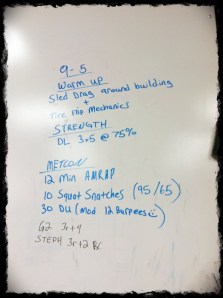 9-5
Warm up
Sled Drag around building
+
Tire Flip Mechanics
STRENGTH
DL 3x5 @ 75%
METCON
12 Min AMRAP
10 Squat Snatches (95/65)
30 DU (mod 12 Burpees☺)
G2 3r+4
STEPH 3r+2 Rx